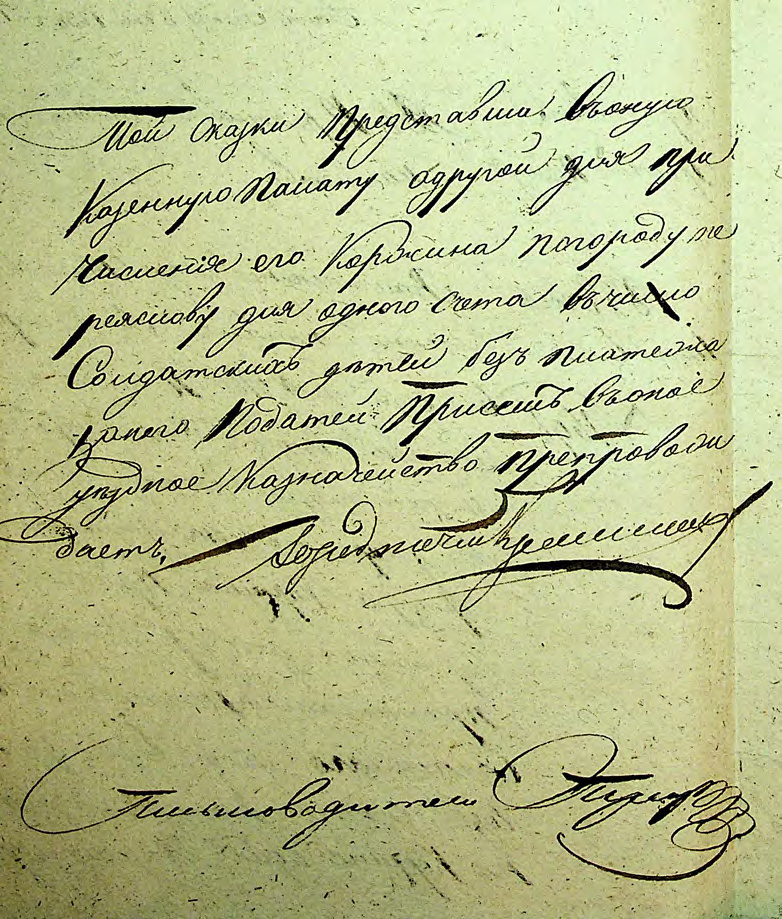 той сказки представила въоную
Казенную Палату адругой для при
числения его Коржина погороду пе
реяславу для одного счета въчисло
Солдатскихъ дѣтей безъ платежа
занего Податей Присемъ въоное
уѣздное Казначейство препровож
даетъ,
Писмоводитель